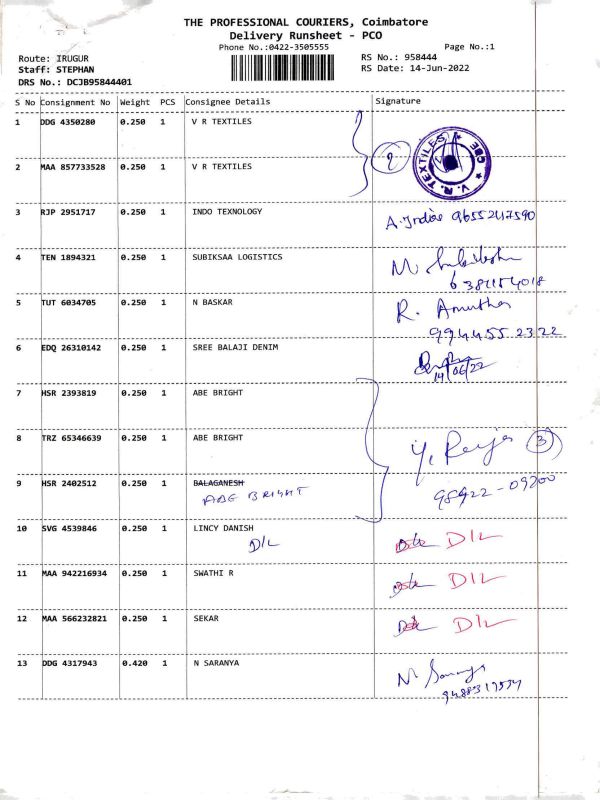 THE PROFESSIONAL COURIERS, Coimbatore
Delivery Runsheet - PCO
Phone No.:0422-3505555
Page No.:1
Route: IRUGUR
RS No.: 958444
Staff: STEPHAN
RS Date: 14-Jun-2022
DRS No.: DCJB95844401
S No Consignment No Weight PCS Consignee Details Signature
1 DDG 4350280 0.250 1 V R TEXTILES
2 V.R. TEXTILES ★ CBE ★
2 MAA 857733528 0.250 1 V R TEXTILES
3 RJP 2951717 0.250 1 INDO TEXNOLOGY
A. 9655247590
4 TEN 1894321 0.250 1 SUBIKSAA LOGISTICS
M.
5 TUT 6034705 0.250 1 N BASKAR
R. Amutha
9944552322
6 EDQ 26310142 0.250 1 SREE BALAJI DENIM
14/06/22
7 HSR 2393819 0.250 1 ABE BRIGHT
8 TRZ 65346639 0.250 1 ABE BRIGHT
Y. 3
9 HSR 2402512 0.250 1 BALAGANESH
ABE BRIGHT
98922-09200
10 SVG 4539846 0.250 1 LINCY DANISH
D/L D/L
11 MAA 942216934 0.250 1 SWATHI R
D/L
12 MAA 566232821 0.250 1 SEKAR
D/L
13 DDG 4317943 0.420 1 N SARANYA
N. Saranya